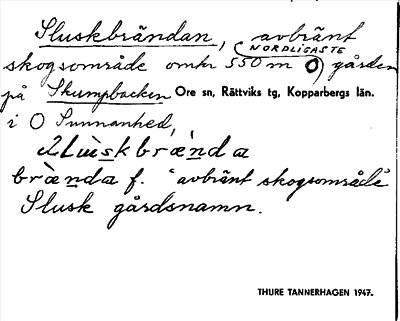 Sluskbrändan, avbränt
NORDLIGASTE
skogsområde omkr 550 m O gården
på Skumpbacken Ore sn, Rättviks tg, Kopparbergs län.
i O Sunnanhed,
brända f. "avbränt skogsområde"
Slusk gårdsnamn.
THURE TANNERHAGEN 1947.